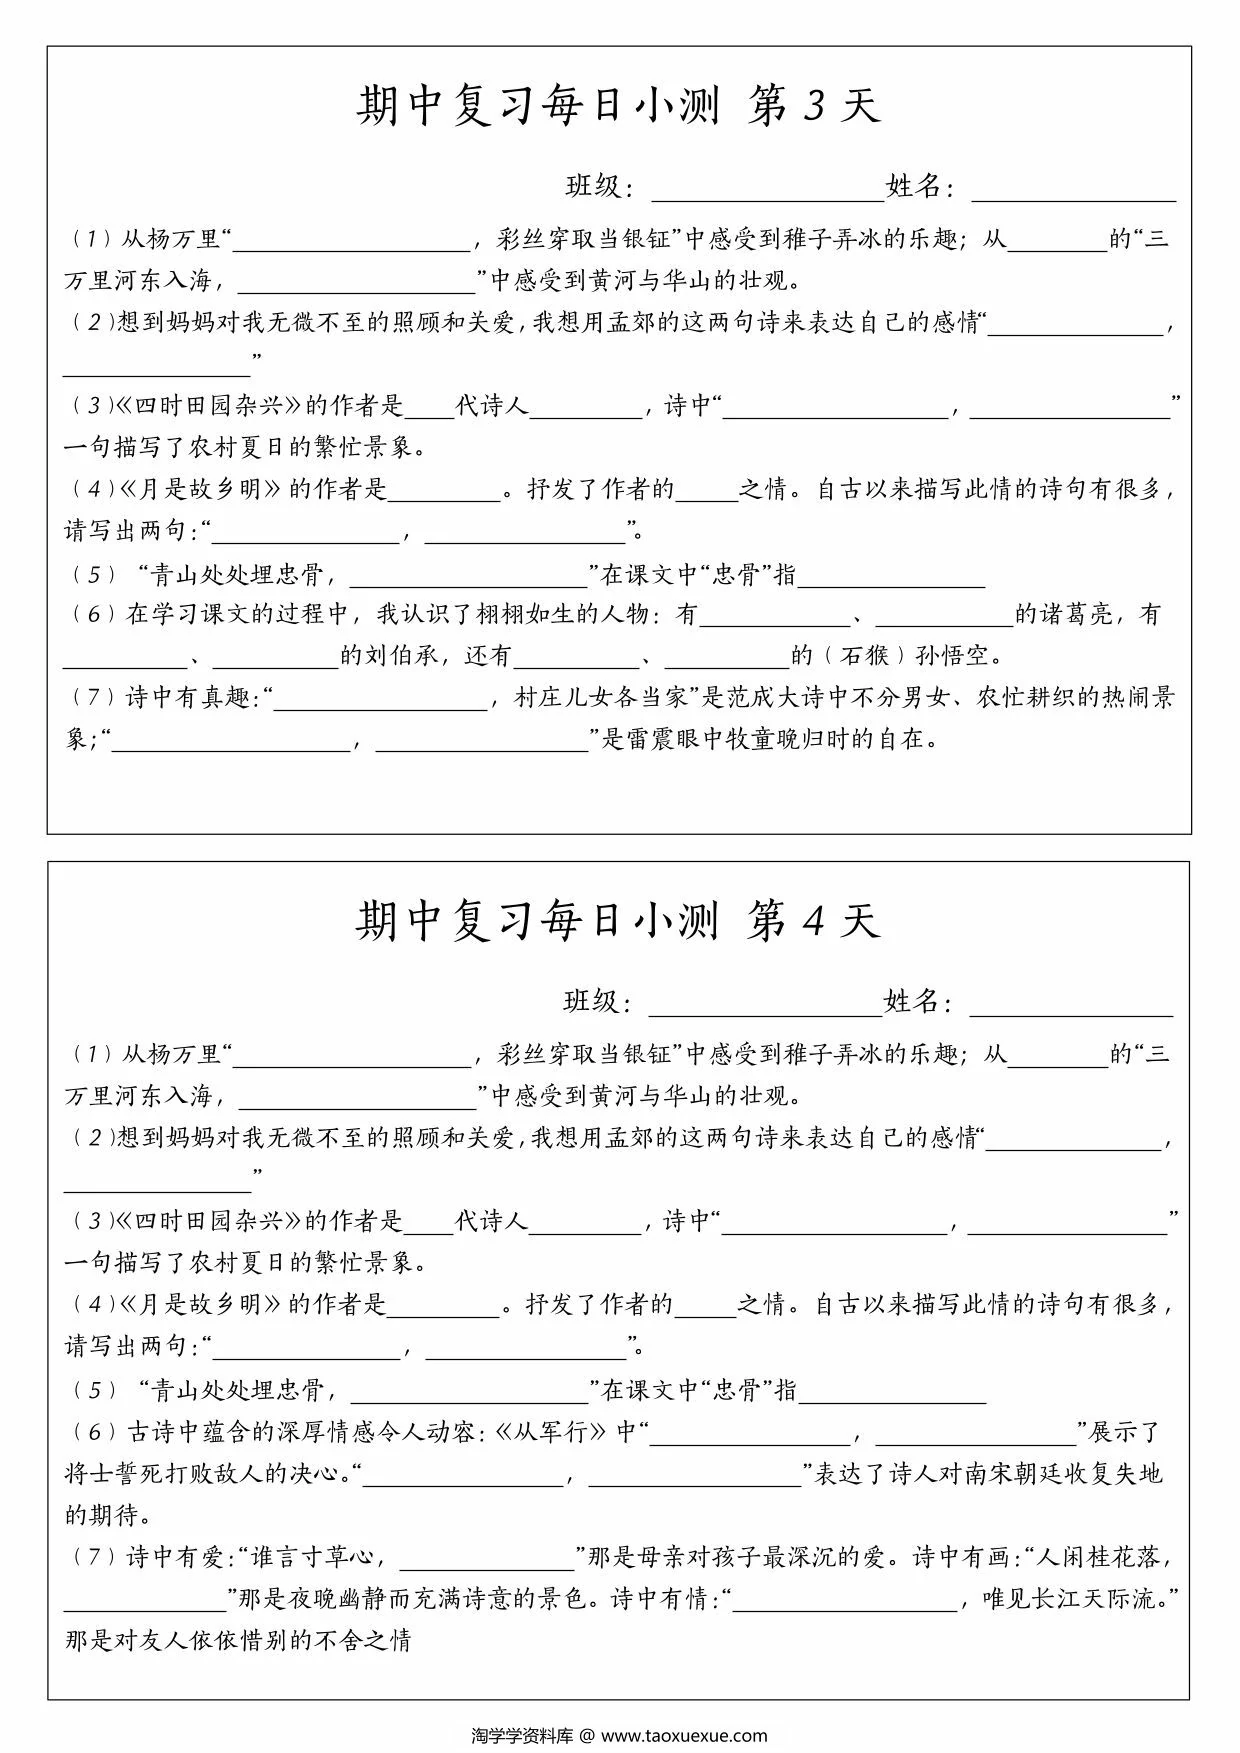 期中复习每日小测 第 3 天
班级：__________姓名：__________
（1）从杨万里“__________，彩丝穿取当银钲”中感受到稚子弄冰的乐趣；从______的“三
万里河东入海，__________”中感受到黄河与华山的壮观。
（2）想到妈妈对我无微不至的照顾和关爱，我想用孟郊的这两句诗来表达自己的感情“__________，
__________”
（3）《四时田园杂兴》的作者是____代诗人________，诗中“__________，__________”
一句描写了农村夏日的繁忙景象。
（4）《月是故乡明》的作者是________。抒发了作者的_____之情。自古以来描写此情的诗句有很多，
请写出两句：“__________，__________”。
（5）“青山处处埋忠骨，__________”在课文中“忠骨”指__________
（6）在学习课文的过程中，我认识了栩栩如生的人物：有__________、__________的诸葛亮，有
__________、__________的刘伯承，还有__________、__________的（石猴）孙悟空。
（7）诗中有真趣：“__________，村庄儿女各当家”是范成大诗中不分男女、农忙耕织的热闹景
象；“__________，__________”是雷震眼中牧童晚归时的自在。
期中复习每日小测 第 4 天
班级：__________姓名：__________
（1）从杨万里“__________，彩丝穿取当银钲”中感受到稚子弄冰的乐趣；从______的“三
万里河东入海，__________”中感受到黄河与华山的壮观。
（2）想到妈妈对我无微不至的照顾和关爱，我想用孟郊的这两句诗来表达自己的感情“__________，
__________”
（3）《四时田园杂兴》的作者是____代诗人________，诗中“__________，__________”
一句描写了农村夏日的繁忙景象。
（4）《月是故乡明》的作者是________。抒发了作者的_____之情。自古以来描写此情的诗句有很多，
请写出两句：“__________，__________”。
（5）“青山处处埋忠骨，__________”在课文中“忠骨”指__________
（6）古诗中蕴含的深厚情感令人动容：《从军行》中“__________，__________”展示了
将士誓死打败敌人的决心。“__________，__________”表达了诗人对南宋朝廷收复失地
的期待。
（7）诗中有爱：“谁言寸草心，__________”那是母亲对孩子最深沉的爱。诗中有画：“人闲桂花落，
__________”那是夜晚幽静而充满诗意的景色。诗中有情：“__________，唯见长江天际流。”
那是对友人依依惜别的不舍之情
淘学学资料库 @ www.taoxuexue.com